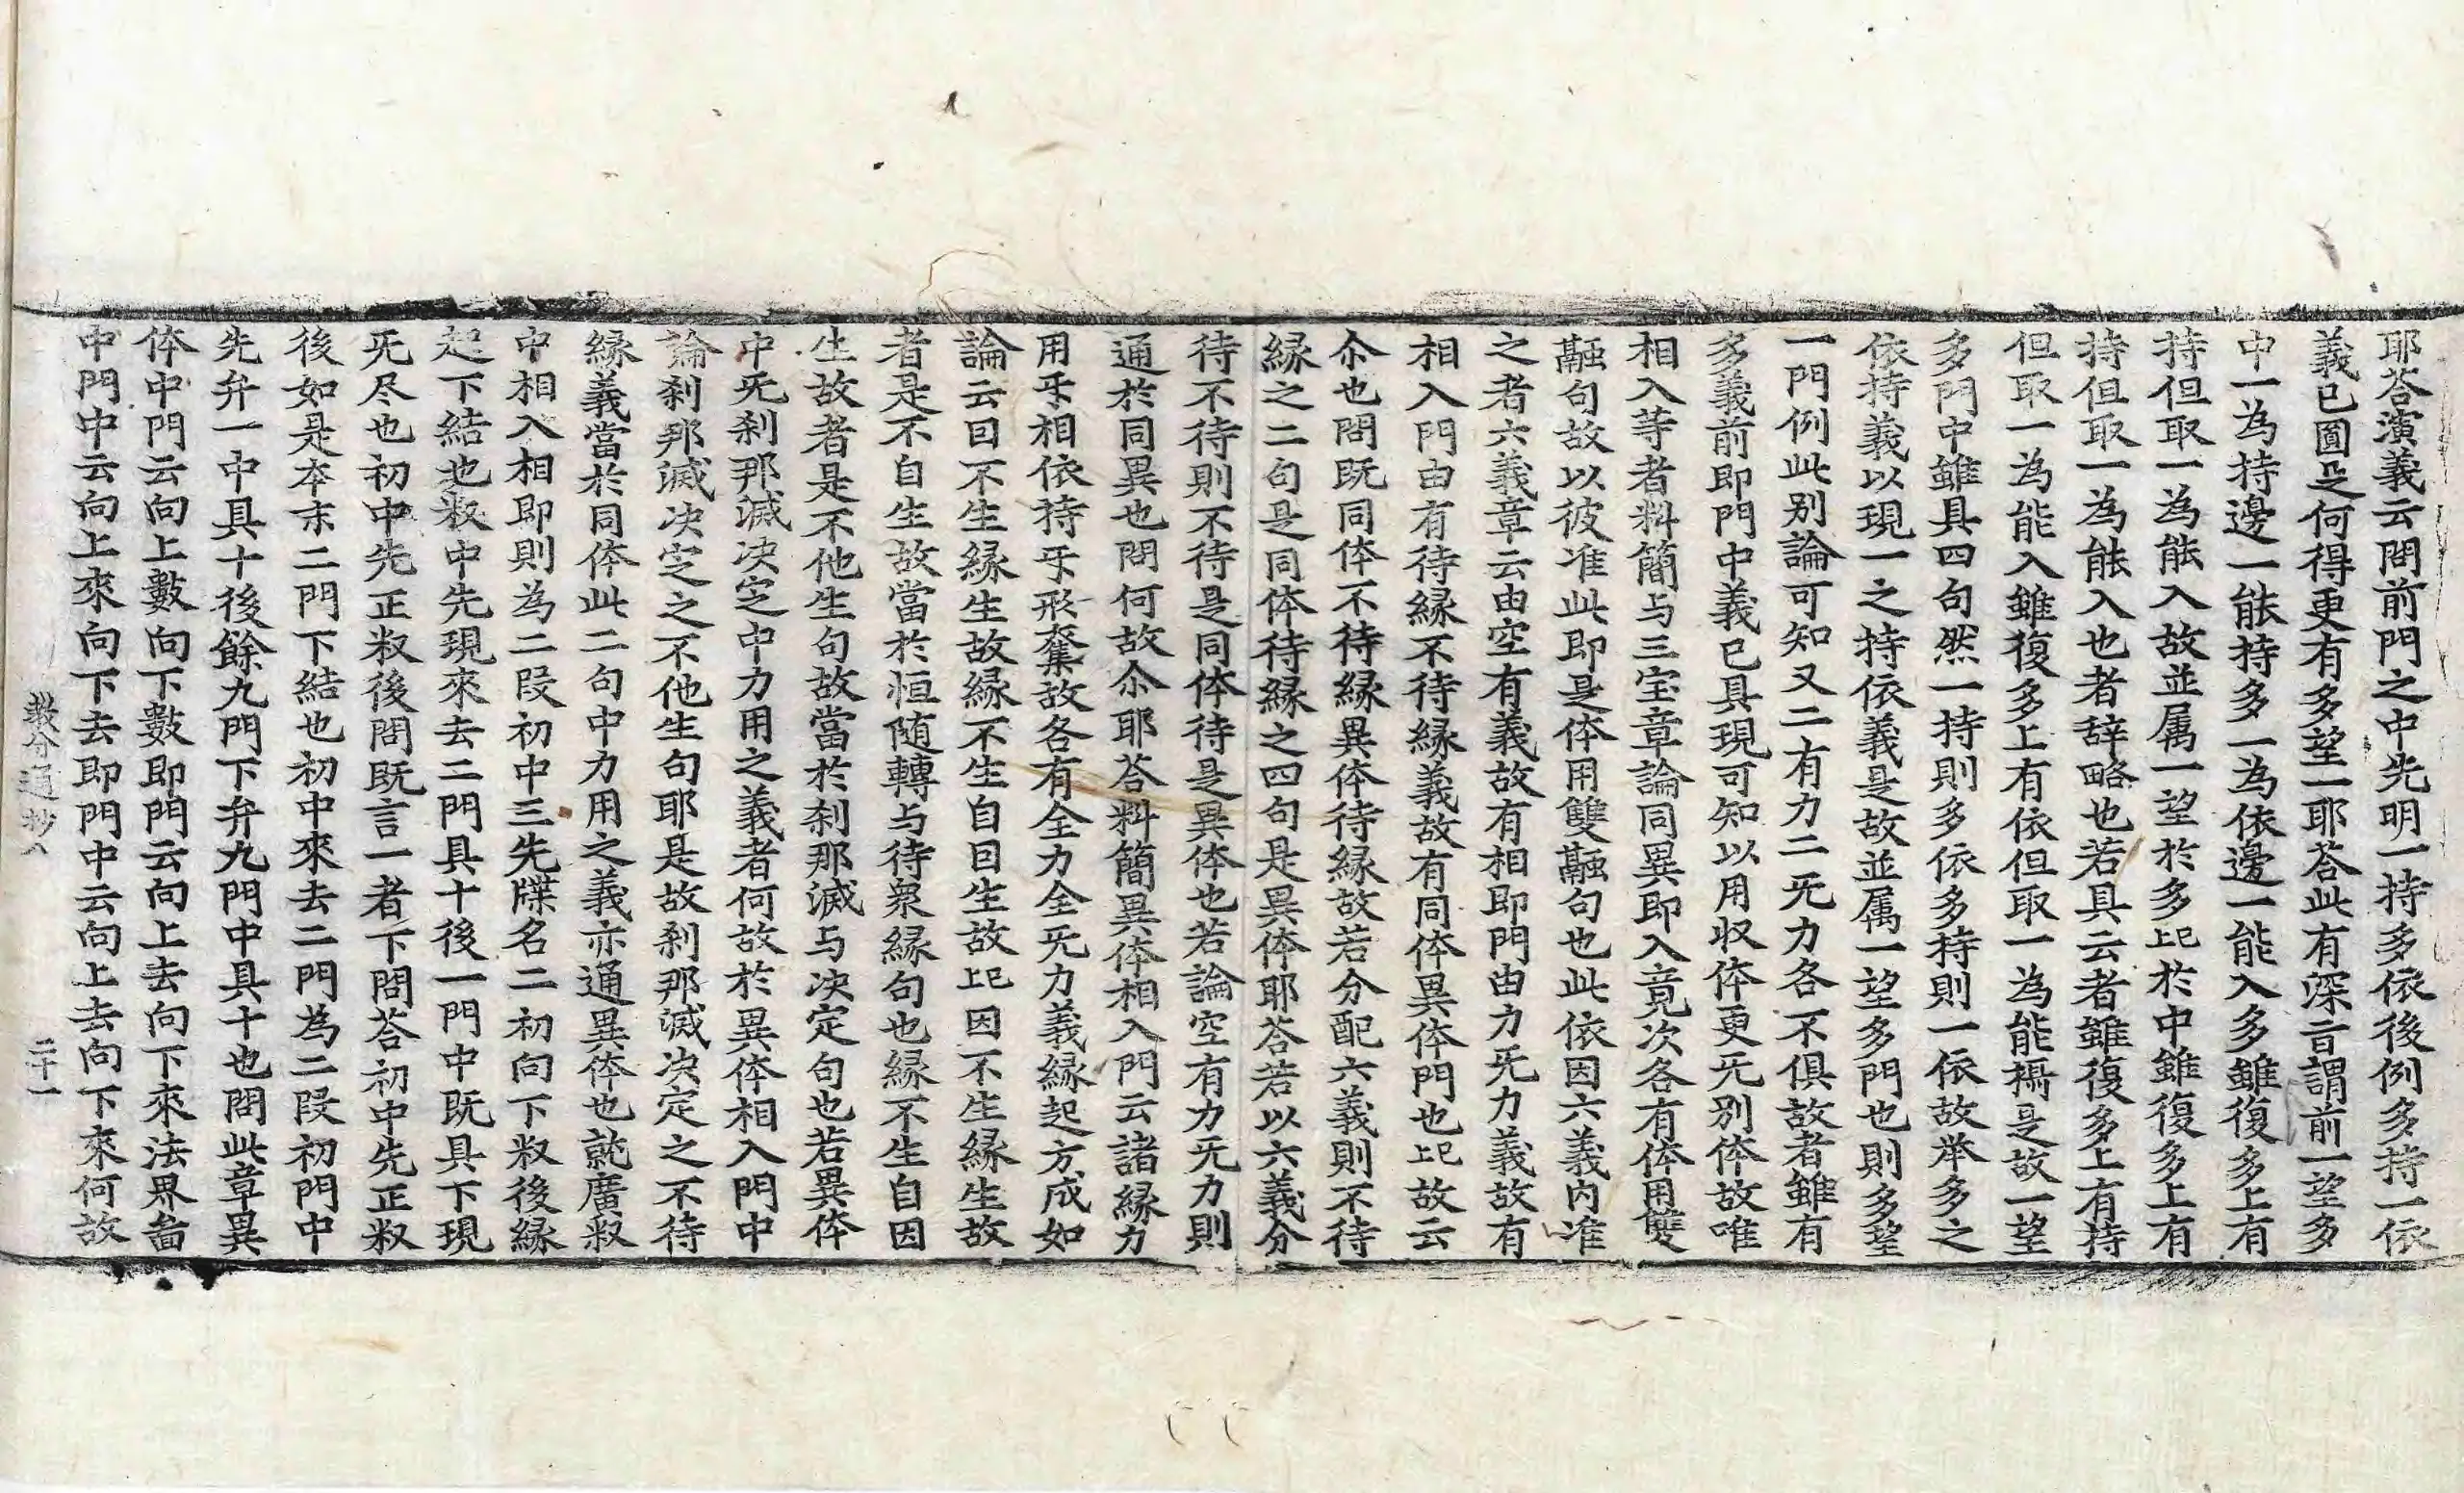 耶荅演義云問前門之中先明一持多依後例多持一依
義已圎𠯁何得更有多望一耶荅此有深㫖謂前一望多
中一為持邊一能持多一為依邊一能入多雖復多上有
持但取一為能入故並属一望於多上巳於中雖復多上有
持但取一為能入也者辞略也若具云者雖復多上有持
但取一為能入雖復多上有依但取一為能攝是故一望
多門中雖具四句然一持則多依多持則一依故举多之
依持義以現一之持依義是故並属一望多門也則多望
一門例此别論可知又二有力二旡力各不俱故者雖有
多義前即門中義已具現可知以用収体更旡別体故唯
相入䓁者料簡与三宝章論同異即入竟次各有体用雙
融句故以彼准此即是体用雙融句也此依因六義内准
之者六義章云由空有義故有相即門由力旡力義故有
相入門由有待縁不待縁義故有同体異体門也上巳故云
尒也問既同体不待縁異体待縁故若分配六義則不待
縁之二句是同体待縁之四句是異体耶荅若以六義分
待不待則不待是同体待是異体也若論空有力旡力則
通於同異也問何故尒耶荅料簡異体相入門云諸縁力
用𠄔相依持𠄔形奪故各有全力全旡力義縁起方成如
論云因不生縁生故縁不生自因生故上巳因不生縁生故
者是不自生故當於恒随轉与待衆縁句也縁不生自因
生故者是不他生句故當於刹那滅与决定句也若異体
中旡刹那滅决定之中力用之義者何故於異体相入門中
論刹那滅决定之不他生句耶是故刹那滅决定之不待
縁義當於同体此二句中力用之義亦通異体也就廣叙
中相入相即則為二段初中三先牒名二初向下叙後縁
起下結也叙中先現來去二門具十後一門中既具下現
旡尽也初中先正叙後問既言一者下問荅初中先正叙
後如是夲末二門下結也初中來去二門為二段初門中
先弁一中具十後餘九門下弁九門中具十也問此章異
体中門云向上數向下數即門云向上去向下來法界啚
中門中云向上來向下去即門中云向上去向下來何故
教分通抄八 二十一